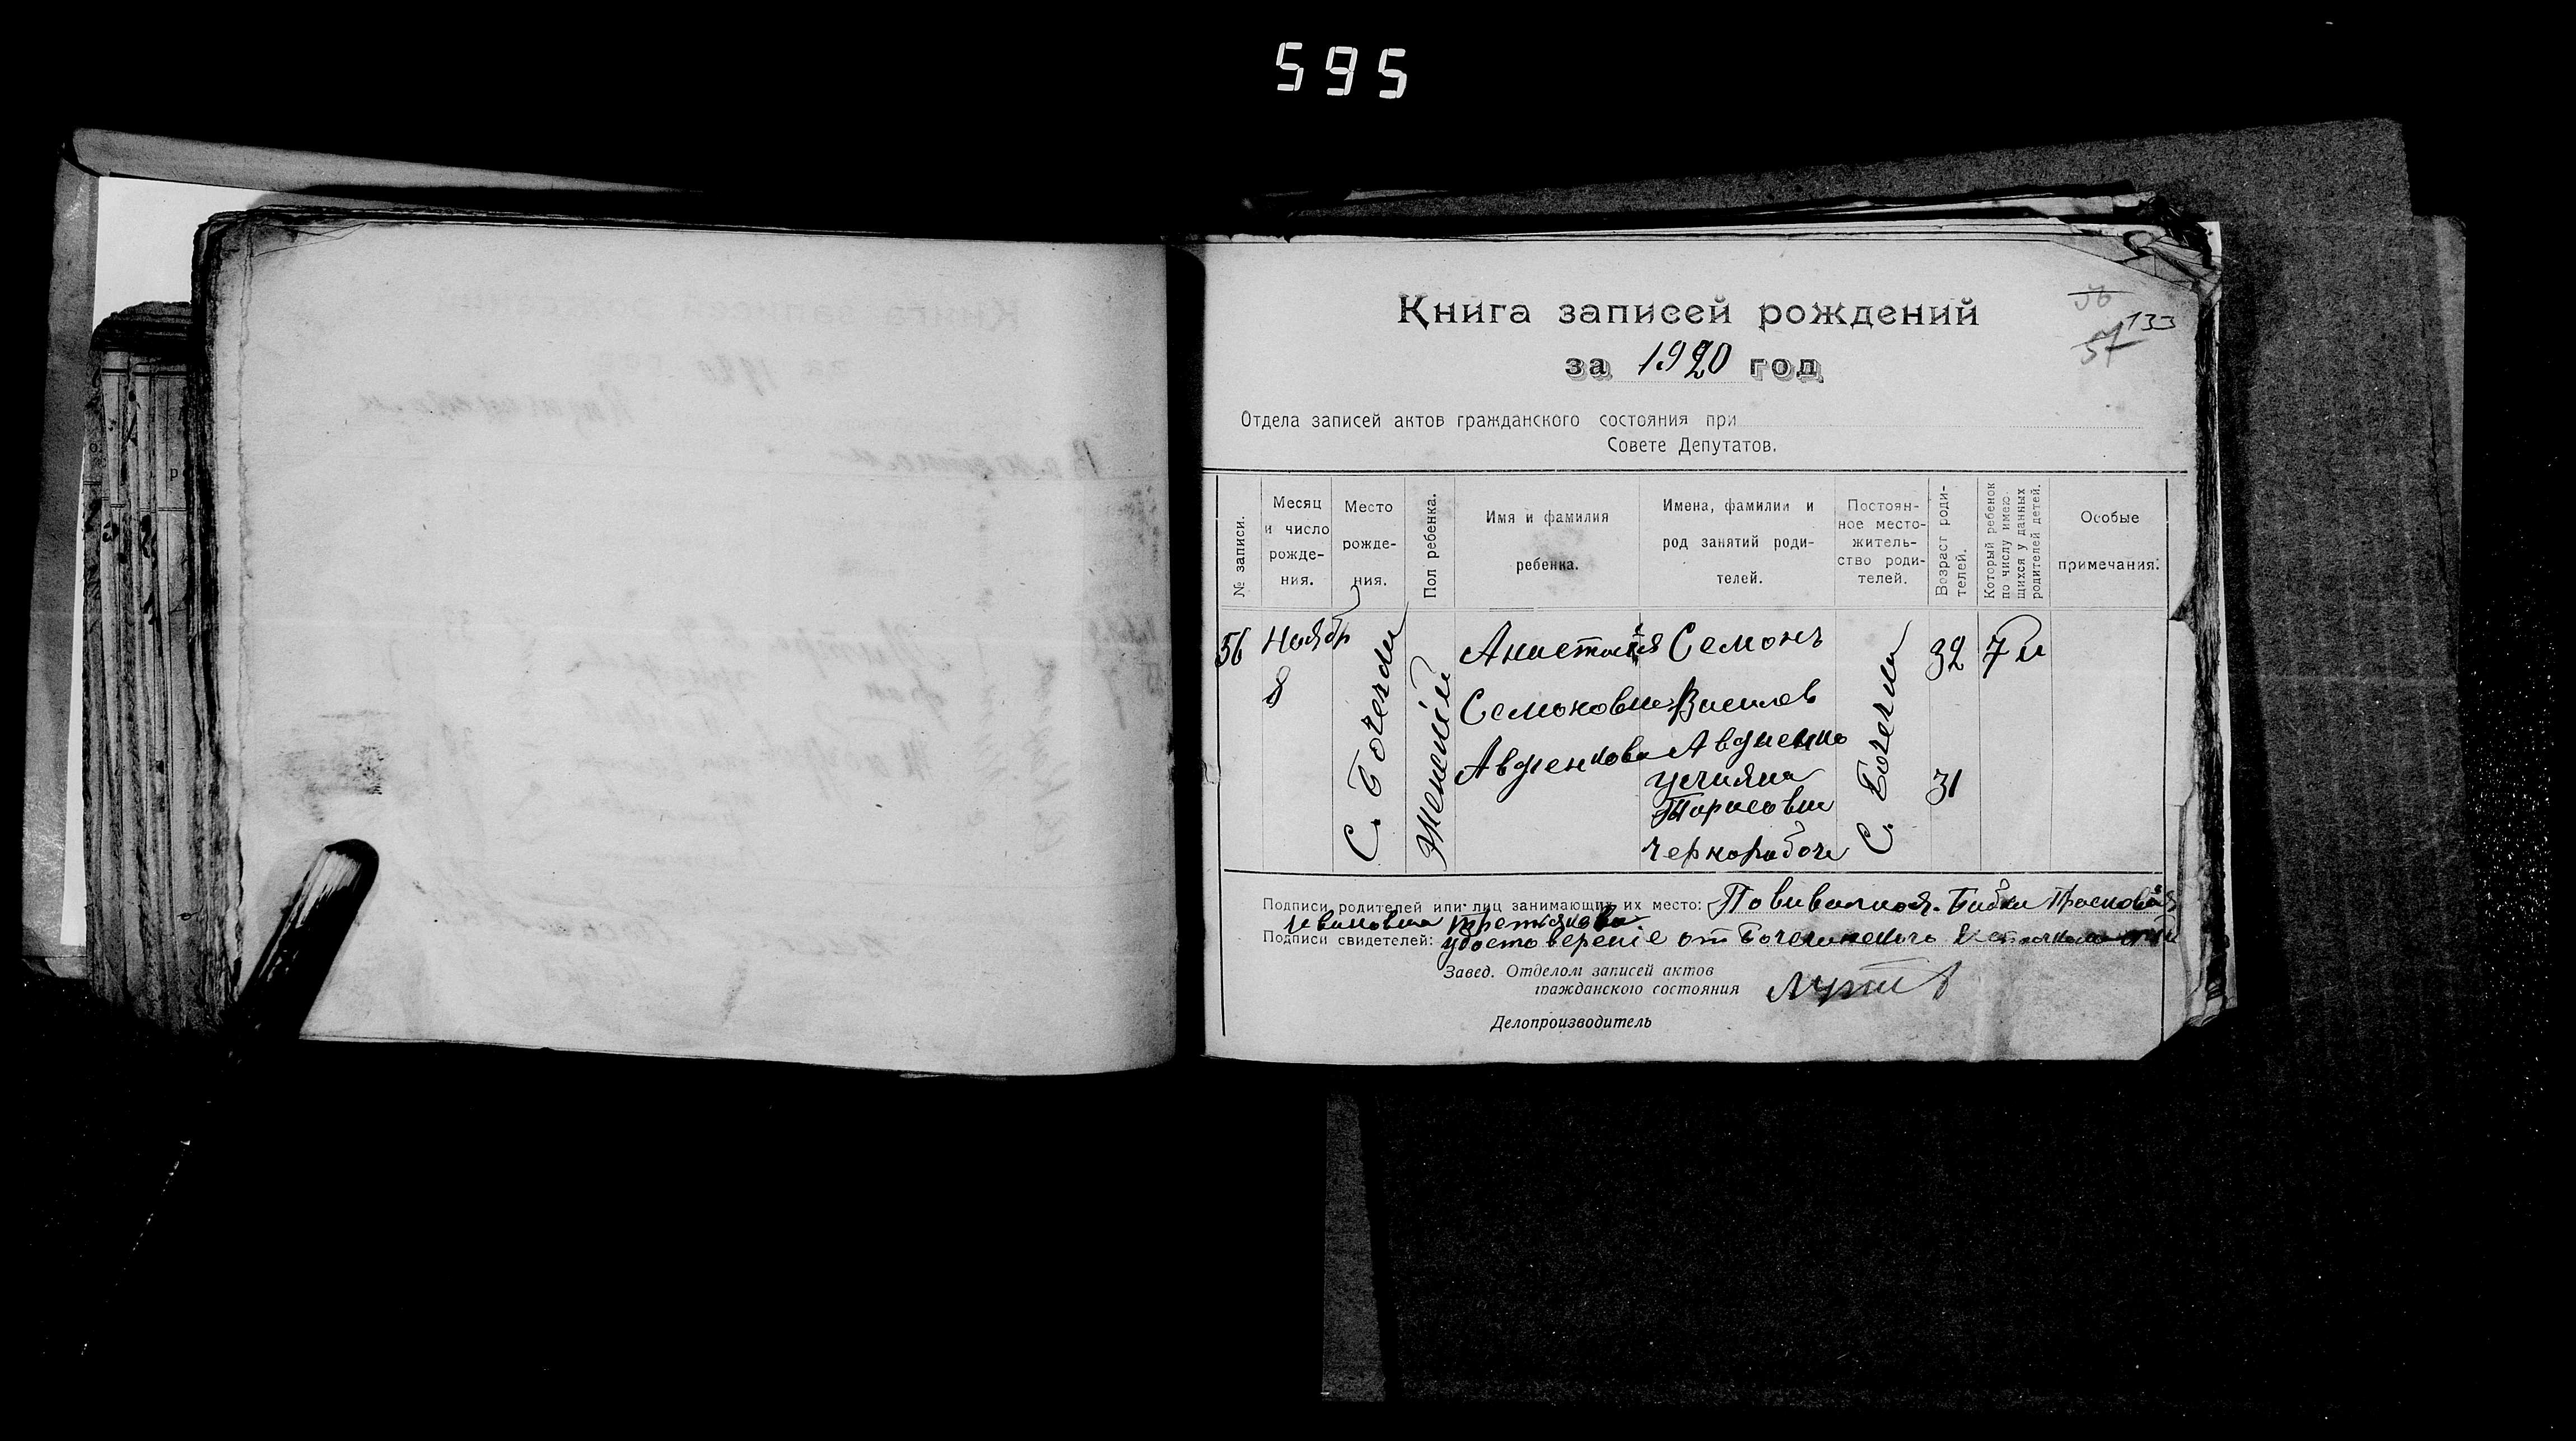 595
Книга записей рождений
за 1920 год
56
57
133
Отдела записей актов гражданского состояния при
Совете Депутатов.
№ записи.
Месяц и число рожде-ния.
Место рожде-ния.
Пол ребенка.
Имя и фамилия ребенка.
Имена, фамилии и род занятий роди-телей.
Постоян-ное место-житель-ство роди-телей.
Возраст роди-телей.
Который ребенок по числу имею-щихся у данных родителей детей.
Особые примечания:
56
Ноябр
8
С. Бочечи
Женский
Анистасія
Семоновна
Авдиенкова
Семонъ
Василев
Авдиенко
Улияна
Тарасовна
Чернорабоч
С. Бочечи
32
31
7 й
Подписи родителей или лиц занимающих их место: Повивалноя. Бабка Прасковія
Ивановна Третьякова.
Подписи свидетелей: удостоверение от Бочечинского
Завед. Отделом записей актов
гражданского состояния
Делопроизводитель